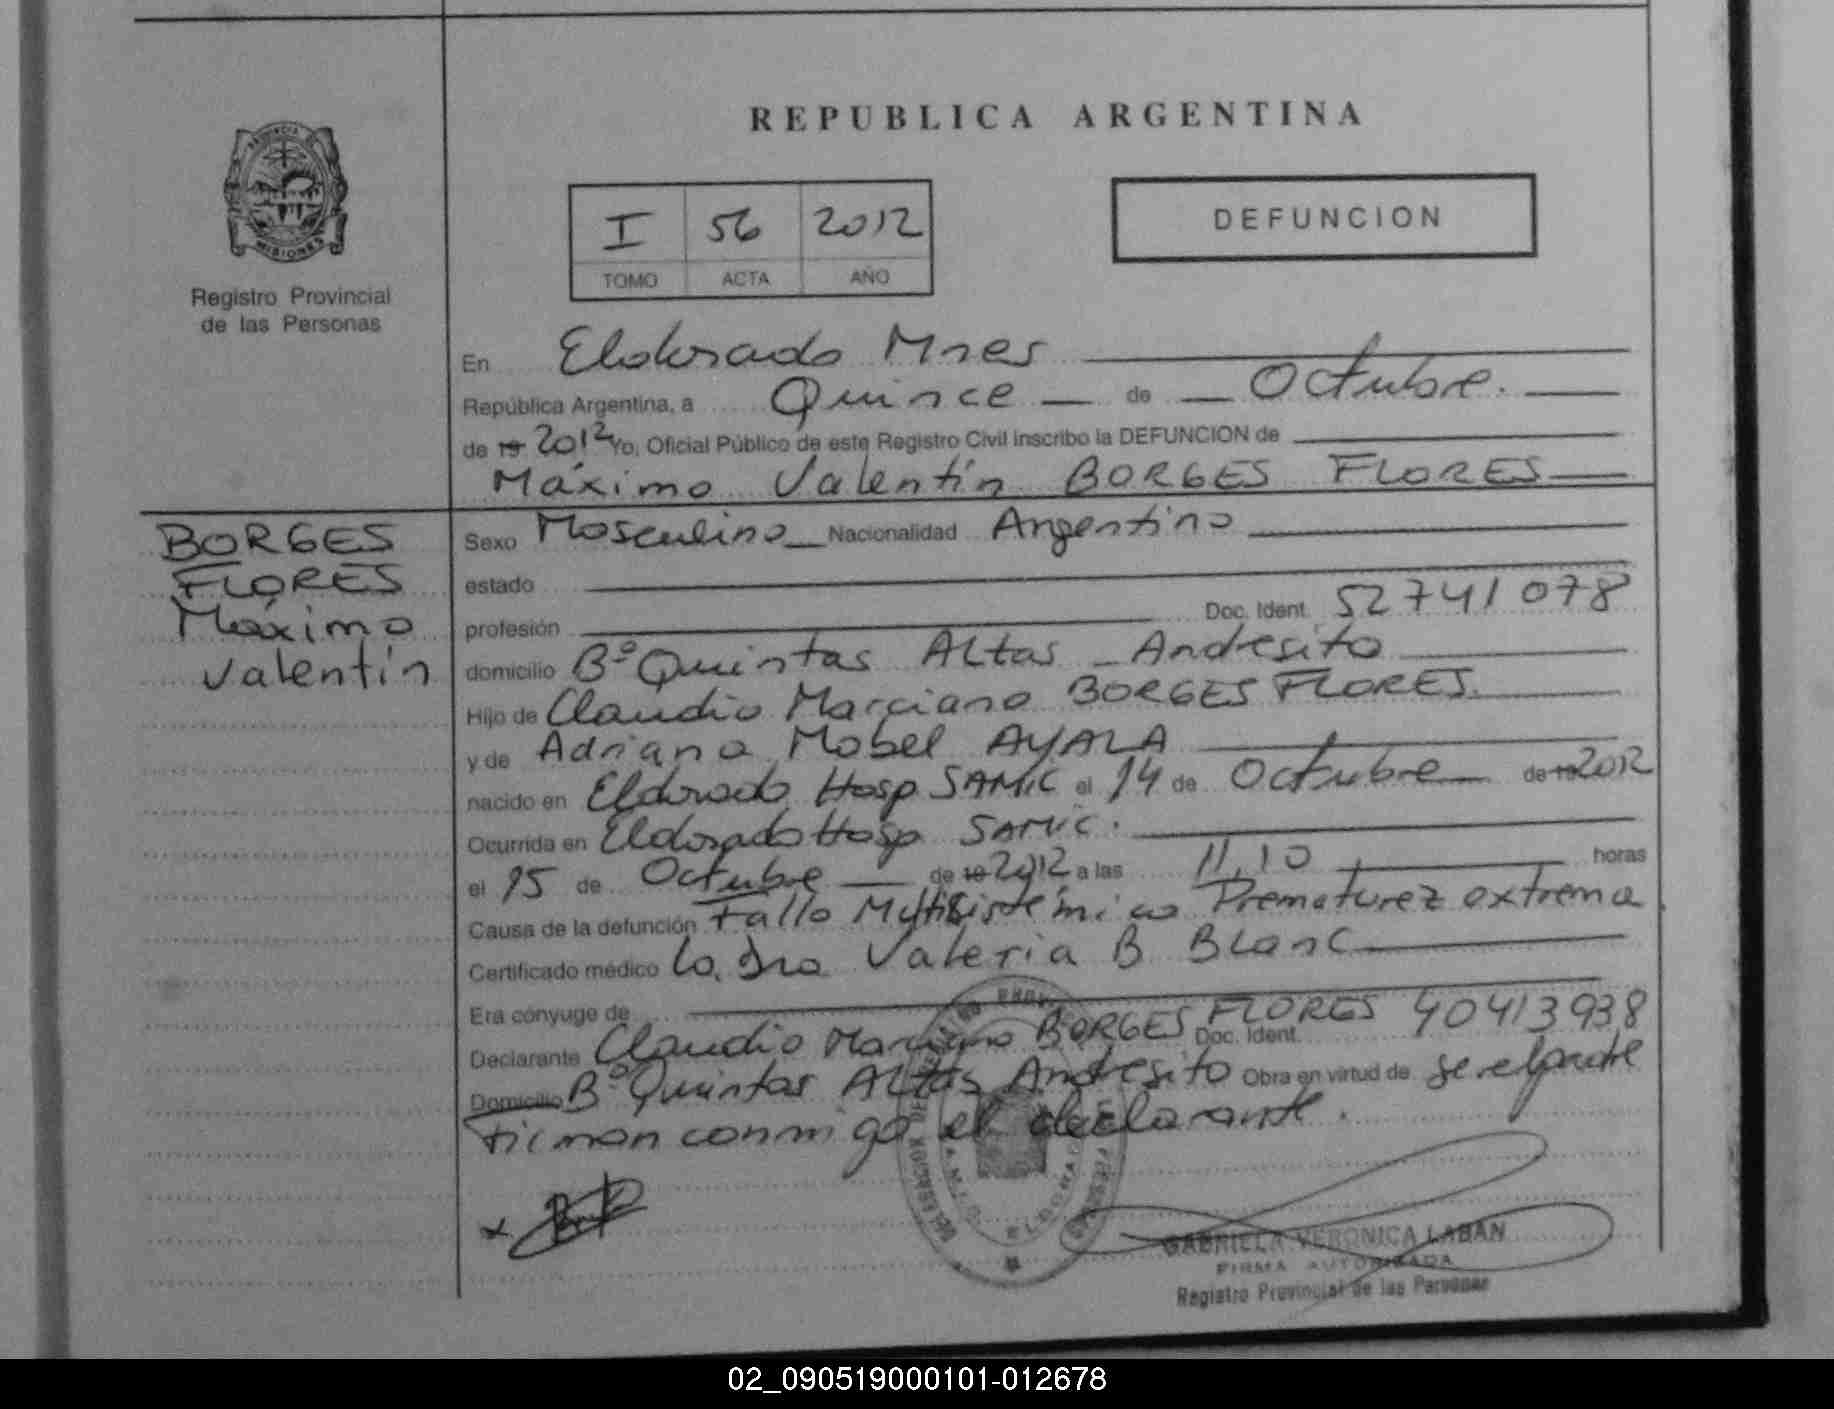 REPUBLICA ARGENTINA
PROVINCIA D
MISIONES
Registro Provincial
de las Personas
I 56 2012
TOMO ACTA AÑO
DEFUNCION
En Eldorado Mnes
República Argentina, a Quince de Octubre.
de 19 2012 Yo, Oficial Público de este Registro Civil inscribo la DEFUNCION de
Máximo Valentín BORGES FLORES
BORGES
FLORES
Máximo
Valentín
Sexo Masculino Nacionalidad Argentina
estado
profesión Doc. Ident. 52741078
domicilio Bº Quintas Altas Andresito
Hijo de Claudio Marciano BORGES FLORES.
y de Adriana Mabel AYALA
nacido en Eldorado Hosp SAMIC el 14 de Octubre de 19 2012
Ocurrida en Eldorado Hosp SAMIC.
el 15 de Octubre de 19 2012 a las 11,10 horas
Causa de la defunción Fallo Multisistémico Prematurez extrema.
Certificado médico La. Dra Valeria B Blanc
Era cónyuge de
Declarante Claudio Marciano BORGES FLORES Doc. Ident. 40413938
Domicilio Bº Quintas Altas Andresito Obra en virtud de ser el padre
Firman conmigo el declarante.
x
ELDORADO
GABRIELA VERONICA LABAN
FIRMA AUTORIZADA
Registro Provincial de las Personas
02_090519000101-012678